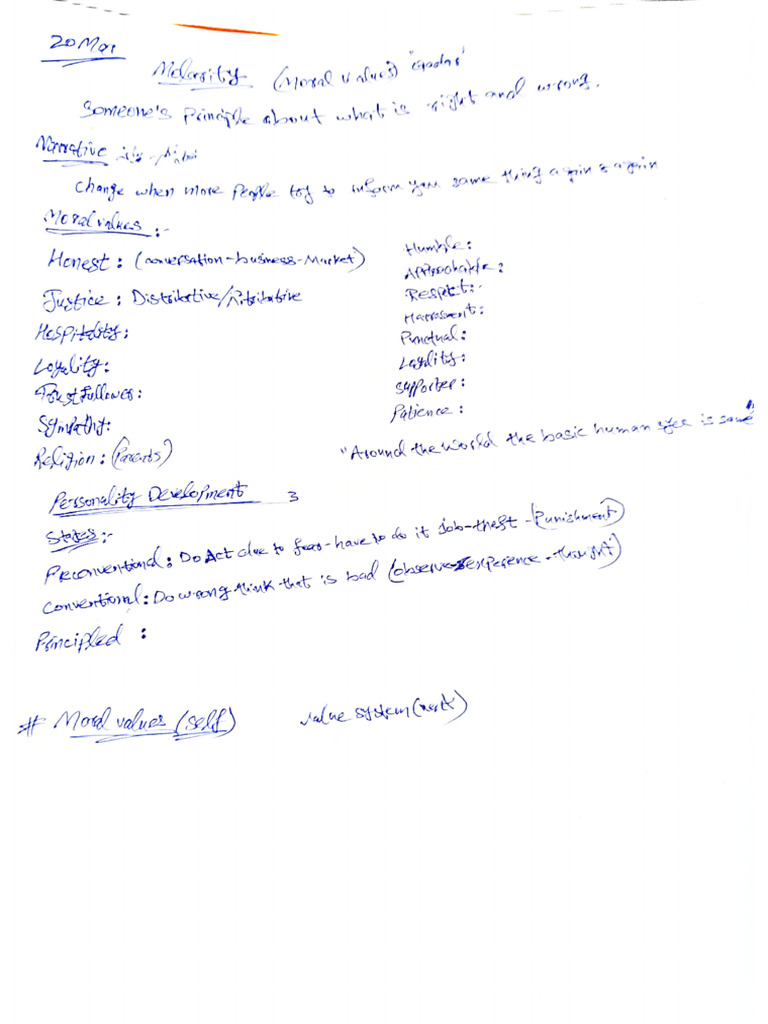 20 Mar
Molarity (Moral values)
Someone's principle about what is right and wrong.
Narrative
change when more people try to inform you same thing again & again
Moral values :-
Honest : (conversation-business-Market)
Justice : Distributive/Ritributive
Hospitality:
Loyality:
Trust Follower:
Sympathy:
Religion: (Parents)
Humble:
Approachable:
Respect:-
Harrasment:
Punctual:
Loyality:
Supporter:
Patience:
"Around the world the basic human is same"
Personality Development 3
States:-
Preconventional: Do Act due to fear-have to do it Job-theft-(Punishment)
Conventional: Do wrong think that is bad (observe-experience-thought)
Principled :
# Moral values (self) value system (next)